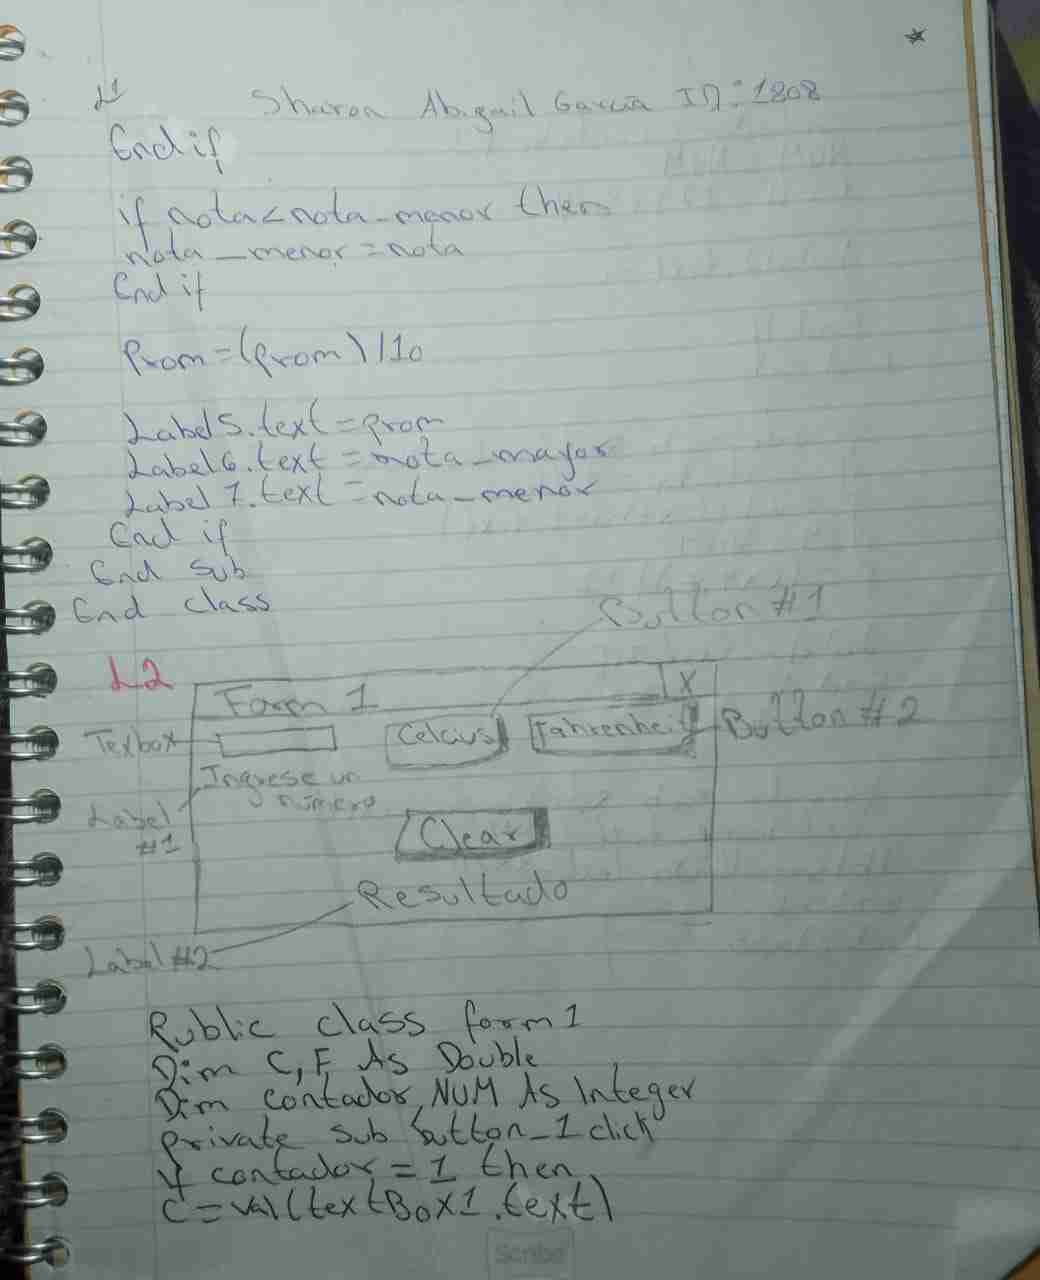 L1
Sharon Abigail Garcia ID: 1808
End if
if nota<nota_menor then
nota_menor=nota
End if
Prom=(prom)/10
Label5.text=prom
Label6.text=nota_mayor
Label7.text=nota_menor
End if
End sub
End class
Button #1
L2
Form 1 X
Texbox Celcius Fahrenheit Button #2
Ingrese un
número
Label
#1
Clear
Resultado
Label #2
Public class form1
Dim C, F As Double
Dim contador, NUM As Integer
private sub button_1click
if contador = 1 then
C=val(textBox1.text)
Scribe